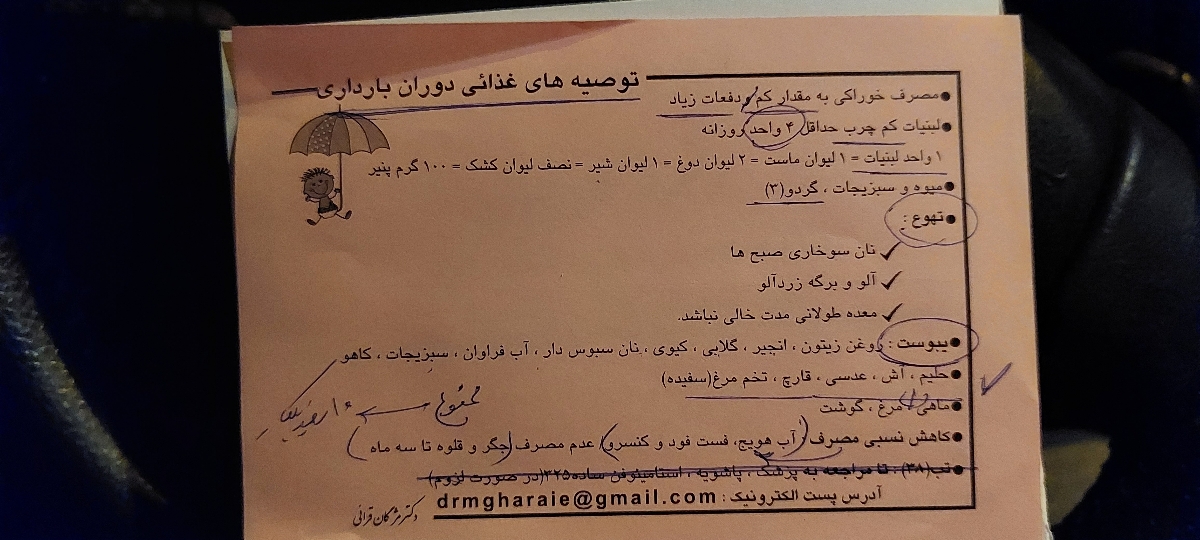 توصیه های غذائی دوران بارداری
●مصرف خوراکی به مقدار کم و دفعات زیاد
●لبنیات کم چرب حداقل ۴ واحد روزانه
۱ واحد لبنیات = ۱ لیوان ماست = ۲ لیوان دوغ = ۱ لیوان شیر = نصف لیوان کشک = ۱۰۰ گرم پنیر
●میوه و سبزیجات ، گردو(۳)
●تهوع :
✓ نان سوخاری صبح ها
✓ آلو و برگه زردآلو
✓ معده طولانی مدت خالی نباشد.
●یبوست : روغن زیتون ، انجیر ، گلابی ، کیوی ، نان سبوس دار ، آب فراوان ، سبزیجات ، کاهو
●حلیم ، آش ، عدسی ، قارچ ، تخم مرغ(سفیده)
●ماهی ، مرغ ، گوشت
●کاهش نسبی مصرف (آب هویج، فست فود و کنسرو)، عدم مصرف (جگر و قلوه تا سه ماه)
●تب(۳۸) : تا مراجعه به پزشک ، پاشویه ، استامینوفن ساده۳۲۵(در صورت لزوم)
آدرس پست الکترونیک : drmgharaie@gmail.com
دکتر مژگان قرائی